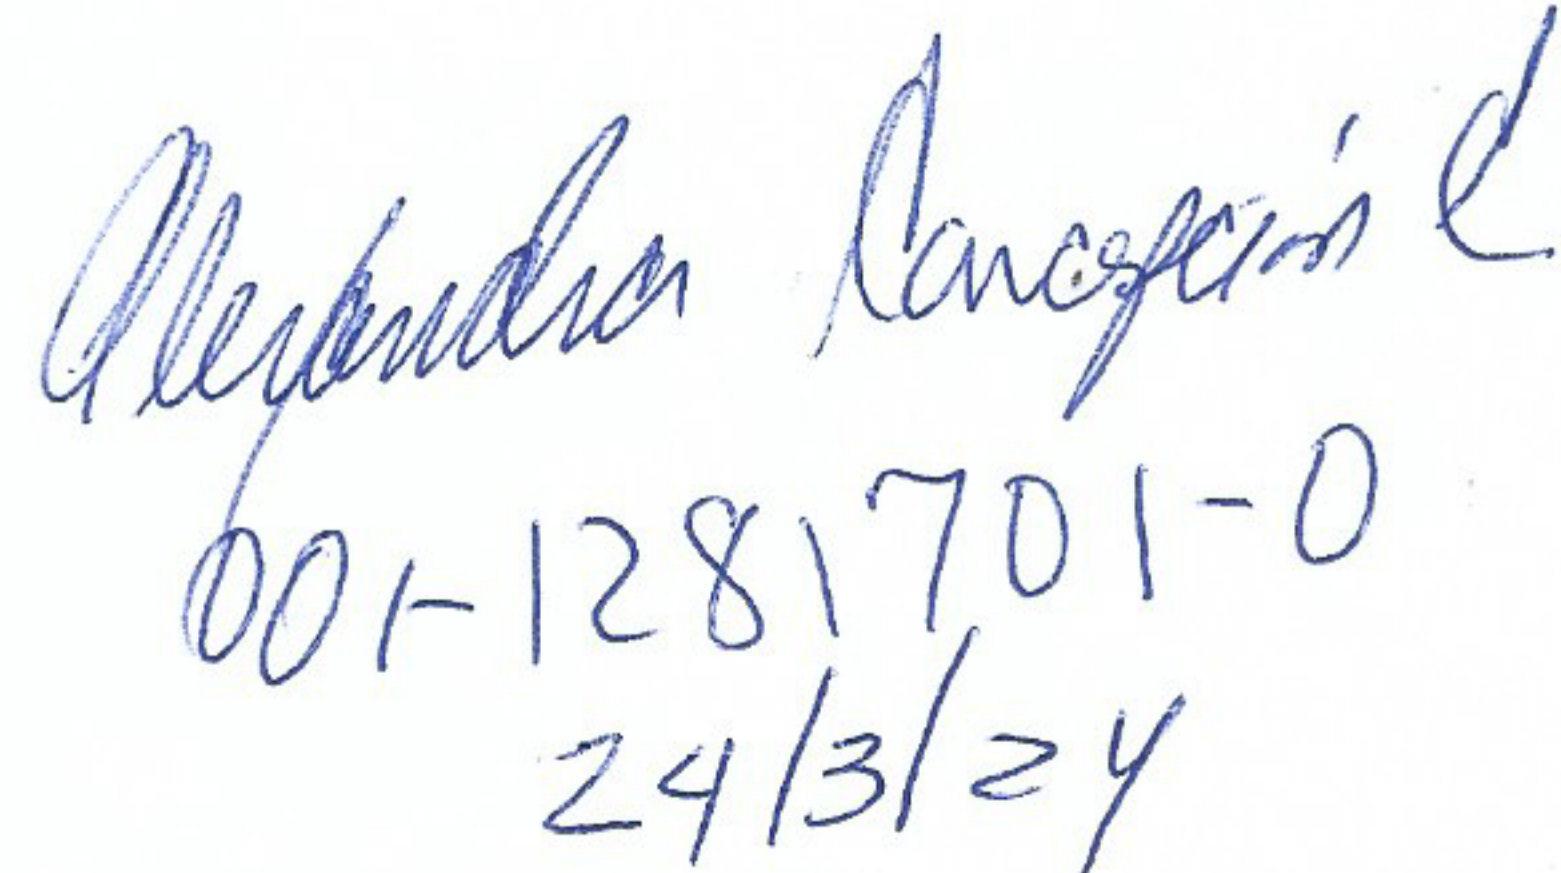 Alejandra Concepción C
001-1281701-0
24/3/24